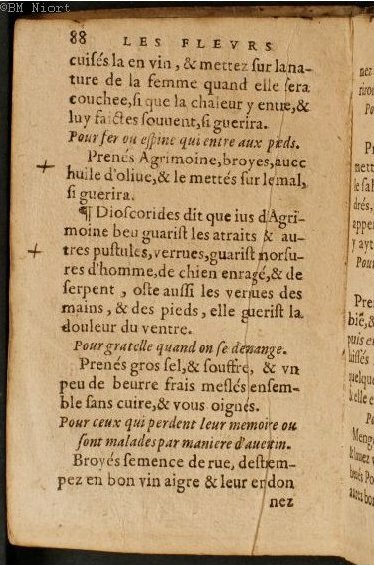 ©BM Niort
88 LES FLEVRS
cuisés la en vin, & mettez sur la na-
ture de la femme quand elle sera
couchee, si que la chaleur y entre, &
luy faictes souuent, si guerira.
Pour fer ou espine qui entre aux pieds.
Prenés Agrimoine, broyes, auec
huile d'oliue, & le mettés sur le mal,
si guerira.
¶ Dioscorides dit que ius d'Agri-
moine beu guarist les atraits & au-
tres pustules, verrues, guarist morsu-
res d'homme, de chien enragé, & de
serpent, oste aussi les verrues des
mains, & des pieds, elle guerist la
douleur du ventre.
Pour gratelle quand on se demange.
Prenés gros sel, & souffre, & vn
peu de beurre frais meslés ensem-
ble sans cuire, & vous oignés.
Pour ceux qui perdent leur memoire ou
sont malades par maniere d'auertin.
Broyés semence de rue, destrem-
pez en bon vin aigre & leur en don
nez